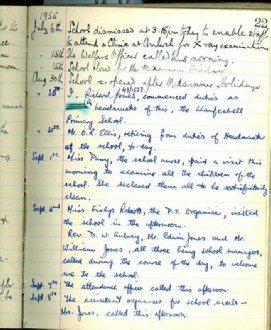 22
1954
July 6th School dismissed at 3.15 today to enable staff
to attend a Clinic at for X ray examination
15th The Welfare Officer called this morning.
15th School closed for the Midsummer Holidays
Aug 30th School re-opens after Midsummer Holidays
" 30th I, Richard Jones, commenced duties as
Headmaster of this, the Llanfechell
Primary School.
" 31st Mr. O. R. Ellis, retiring from duties of Headmaster
of the school, to-day.
Sept. 1st Miss Parry, the school nurse, paid a visit this
morning to examine all the children of the
school. She declared them all to be satisfactorily
clean.
Miss Roberts, the P.T. Organiser, visited
the school in the afternoon.
Rev. D. W. Aubrey, Mr. Edwin Jones and Mr.
William Jones, all three being school managers,
called during the course of the day, to welcome
me to the school.
Sept. 7th The attendance officer called this afternoon
Sept. 8th The assistant organiser for school meals—
Mrs. Jones, called this afternoon